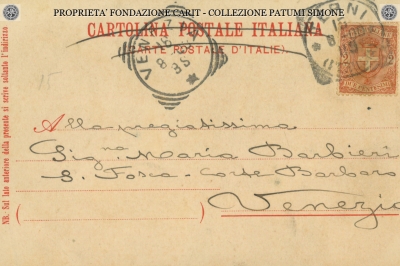 PROPRIETA' FONDAZIONE CARIT - COLLEZIONE PATUMI SIMONE
CARTOLINA POSTALE ITALIANA
(CARTE POSTALE D'ITALIE)
15
Alla pregiatissima
Sig.na Maria Barbieri
S. Fosca - Corte Barbaro
Venezia
(
)
NB. Sul lato anteriore della presente si scrive soltanto l'indirizzo